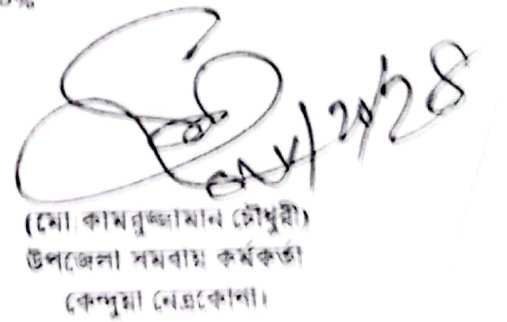 (মো: কামরুজ্জামান চৌধুরী)
উপজেলা সমবায় কর্মকর্তা
কেন্দুয়া নেত্রকোনা।